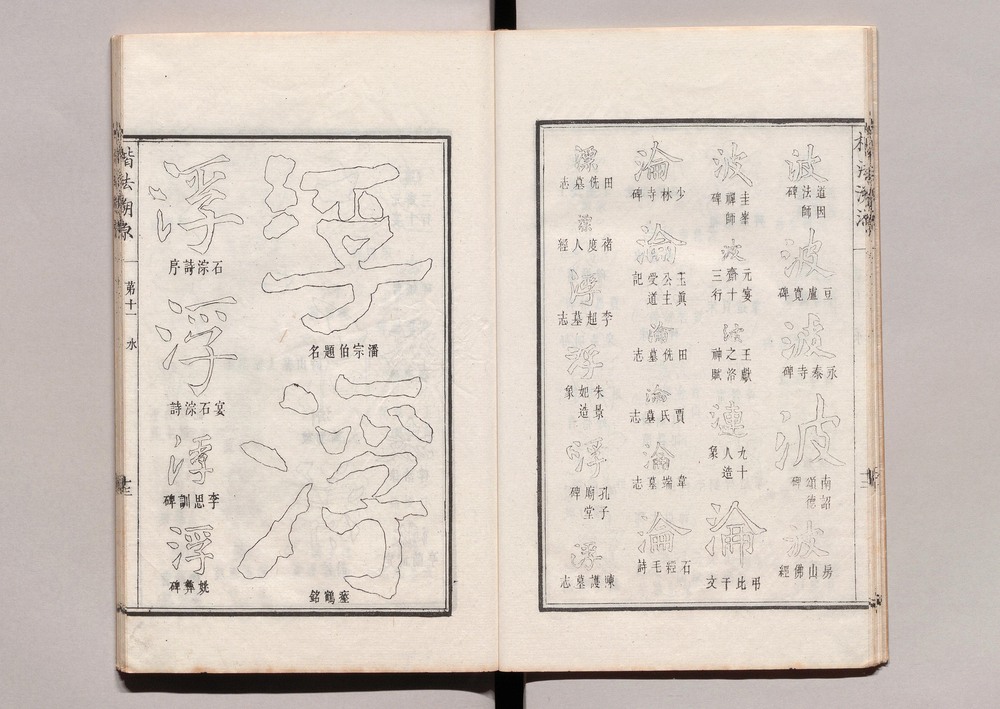 波
道因法師碑
波
豆盧寬碑
波
永泰寺碑
波
南詔德頌碑
波
房山佛經
波
圭峯禪師碑
波
元宴齋十三行
波
王獻之洛神賦
漣
九十人造象
淪
弔比干文
淪
少林寺碑
淪
玉眞公主受道記
淪
田侁墓志
淪
賈氏墓志
淪
韋端墓志
淪
石淙毛詩
漂
田侁墓志
漂
褚度人經
浮
李超墓志
浮
朱曇妲造象
浮
孔子廟堂碑
浮
陳護墓志
潘宗伯題名
浮
瘞鶴銘
浮
石淙詩序
浮
宴石淙詩
浮
李思訓碑
浮
姚彝碑
楷法溯源
第十一
水
十三